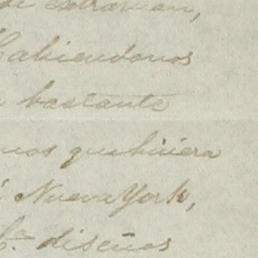 de extravian,
Habiendonos
bastante
nos quebiniera
á Nueva York,
diseños